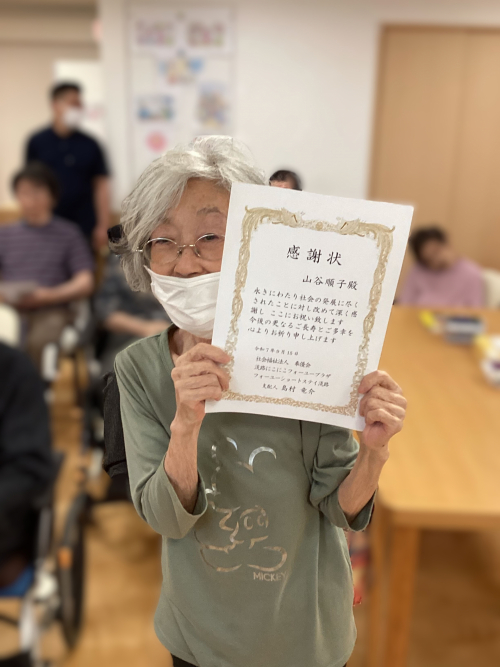 感謝状
山谷順子殿
永きにわたり社会の発展に尽く
されたことに対し改めて深く感
謝し ここにお祝い致します
今後の更なるご長寿とご多幸を
心よりお祈り申し上げます
社会福祉法人 奉優会
淡路にこにこフォーユープラザ
フォーユーショートステイ淡路
支配人 島村 竜介
MICKEY